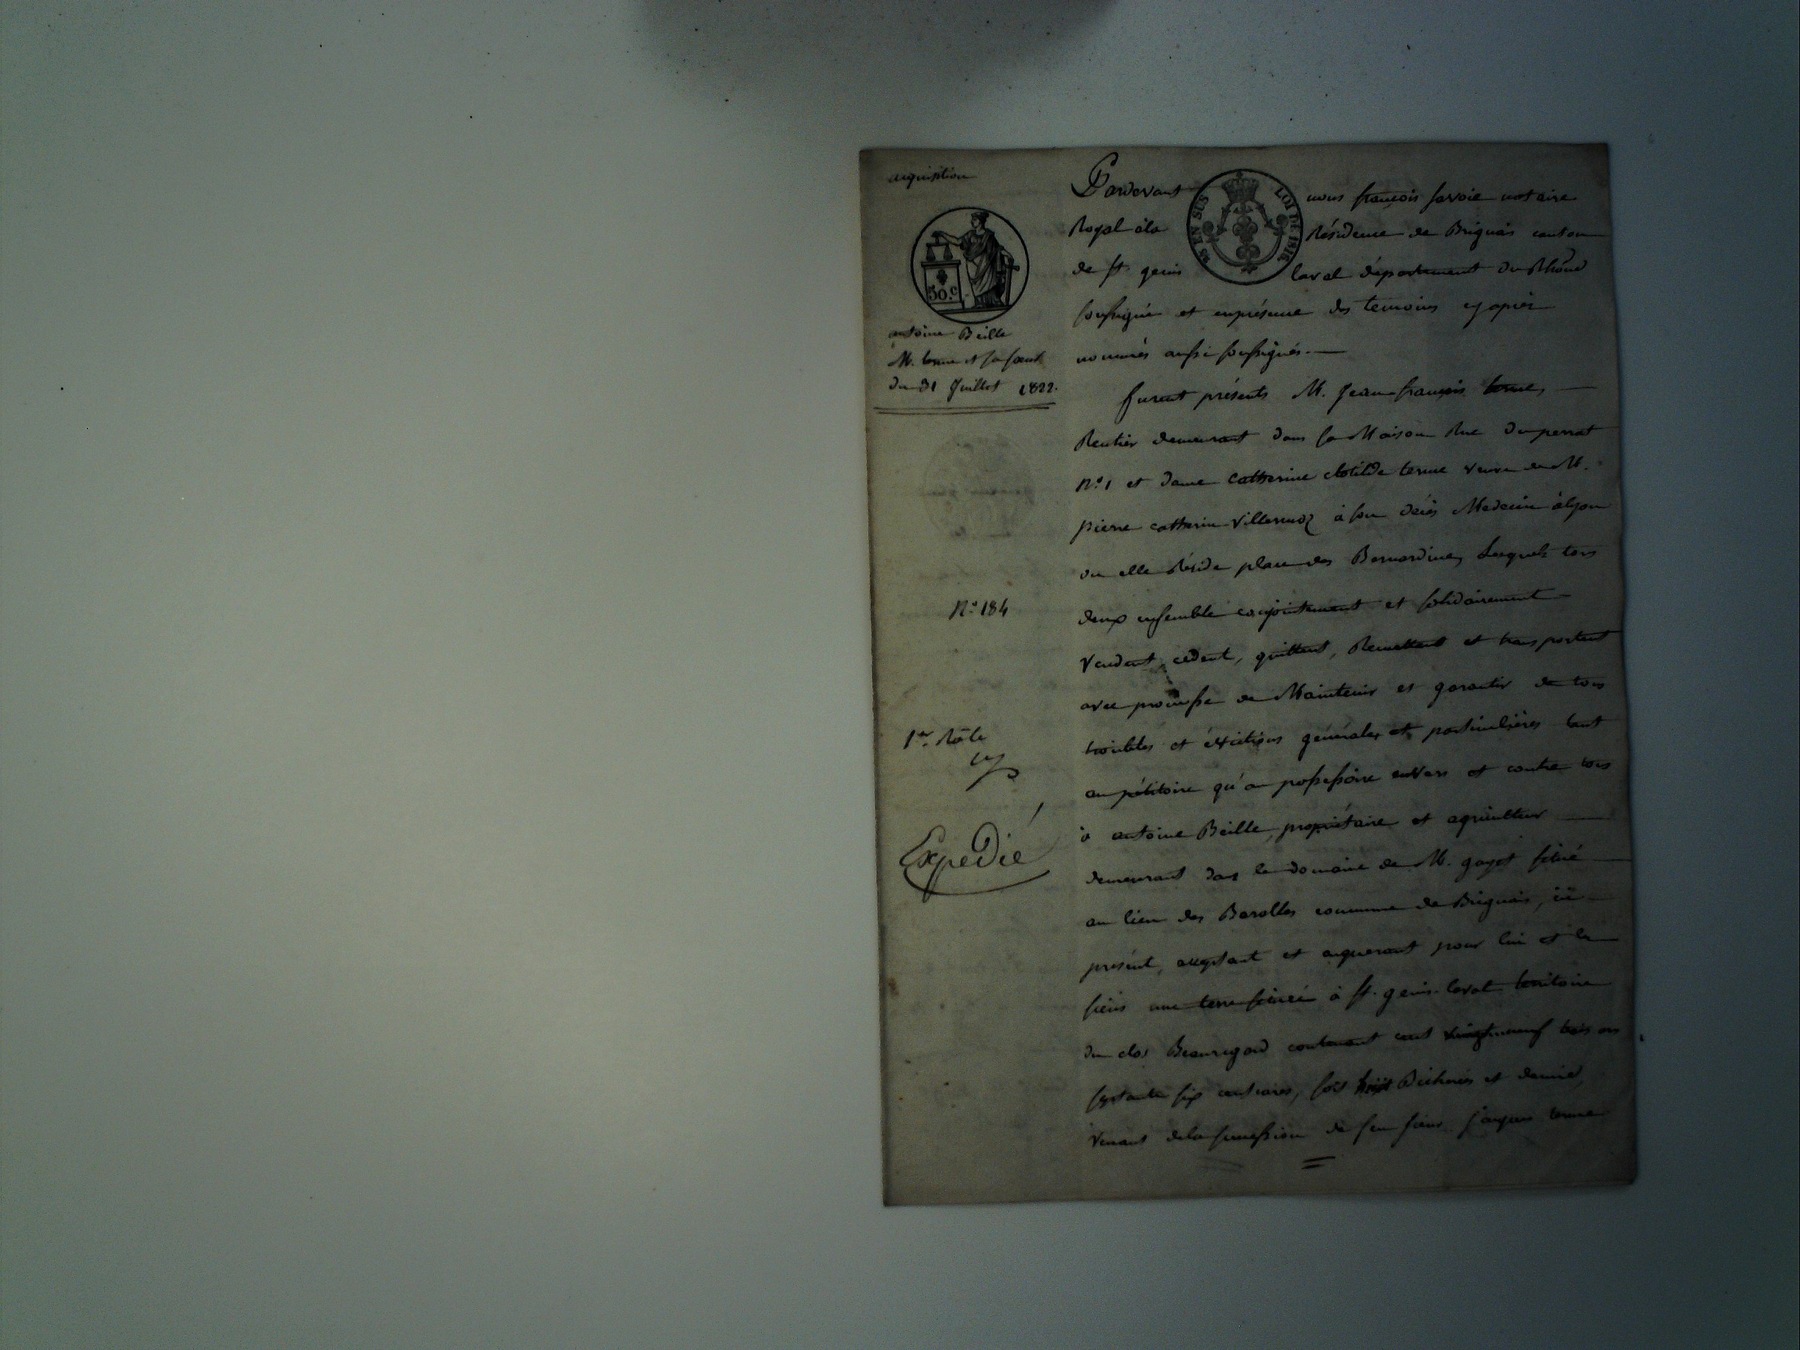 acquisition
50.c
antoine Beille
M. terme et sa soeur
du 31 Juillet 1822.
N.o 184
1er Rôle
Expédié
EN SUS LOI DE
Pardevant nous françois Savoie notaire
Royal à la Résidence de Briguais canton
de St. genis laval département du Rhône
soussigné et enprésence des temoins cy après
nommés aussi soussignés.
furent présents M. Jean françois terme,
Rentier demeurant dans sa Maison Rue duperrat
N.o 1 et dame catherine clotilde terme veuve de M.
pierre catherin Villermoz à son décès Medecin àlyon
ou elle Réside place des Bernardines, Lesquels tous
deux ensemble conjointement et solidairement
Vendent, cèdent, quittent, Remettent et transportent
avec promesse de Maintenir et garantir de tous
troubles et évictions générales et particulières tant
au pétitoire qu'au possessoire envers et contre tous
à antoine Beille, propriétaire et agriculteur
demeurant dans le domaine de M. gayot situé
au lieu des Barolles commune de Briguais, ici
présent, acceptant et acquerant pour lui et les
siens une terre située à St. genis-laval territoire
du clos Beauregard contenant cent vingtneuf ares
septante six centiares, soit Bicherées et demie,
venant dela succession de feu sieur Jacques terme